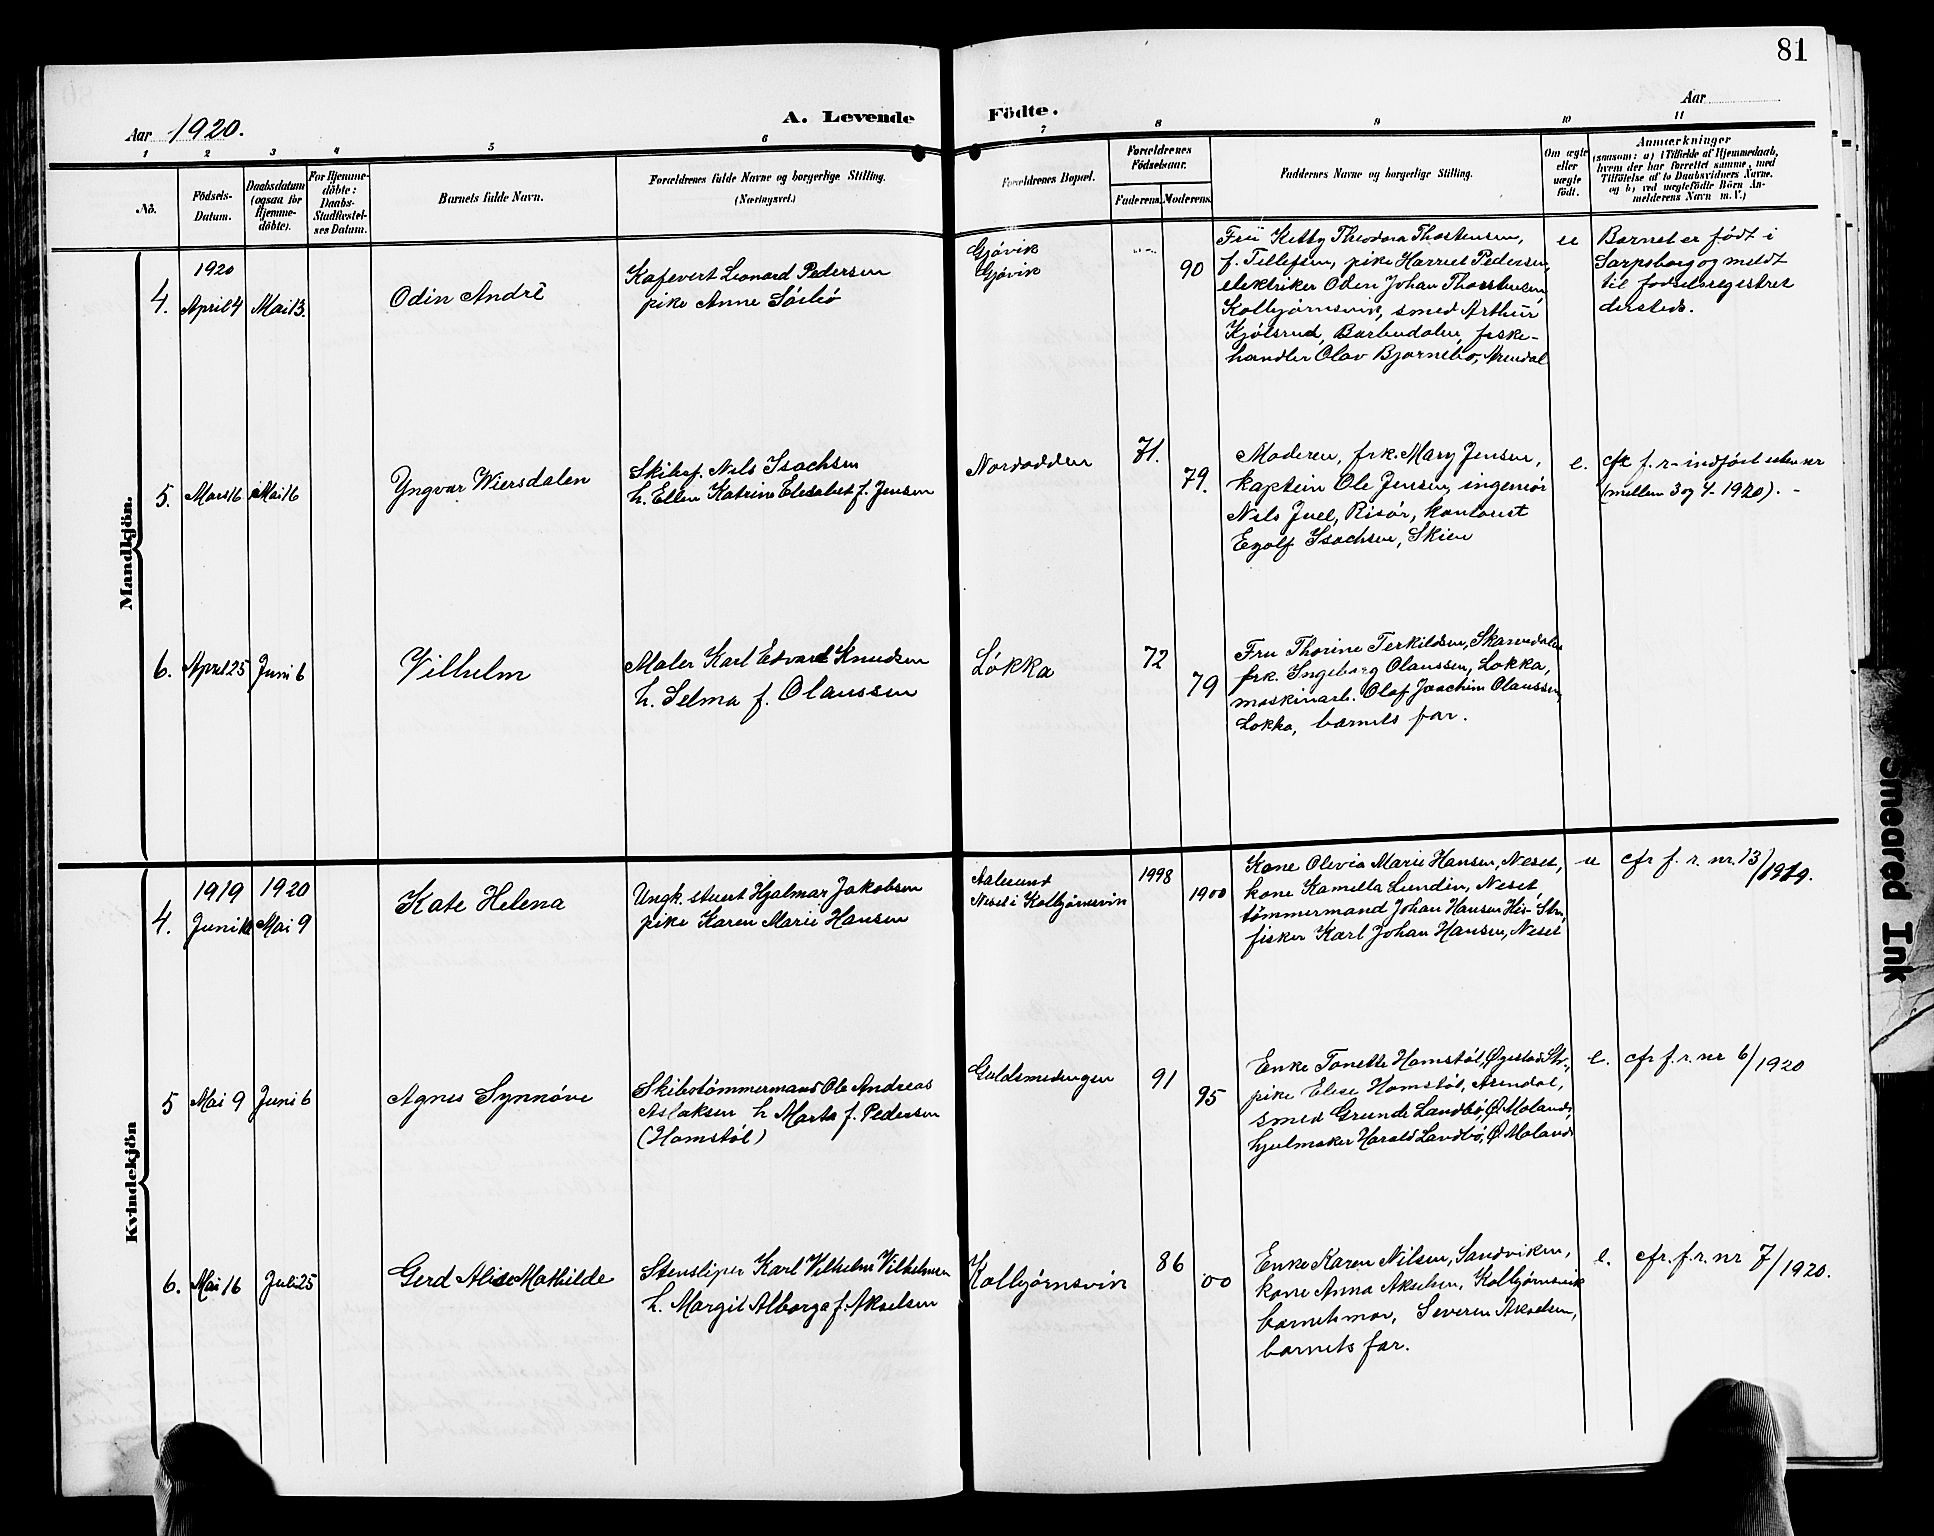 81
Aar 1920.
A. Levende Födte.
Aar
1 2 3 4 5 6 7 8 9 10 11
No.
Födsels-
Datum.
Daabsdatum
(ogsaa for
Hjemme-
döbte).
For Hjemme-
döbte:
Daabs-
Stadfæstel-
ses Datum.
Barnets fulde Navn.
Forældrenes fulde Navne og borgerlige Stilling.
(Næringsvei.)
Forældrenes Bopæl.
Forældrenes
Födselsaar.
Faderens. Moderens.
Faddernes Navne og borgerlige Stilling.
Om ægte
eller
uægte
födt.
Anmærkninger
(saasom: a) i Tilfælde af Hjemmedaab,
hvem der har forrettet samme, med
Tilföielse af to Daabsvidners Navne.
og b) ved uægtefödte Börn An-
melderens Navn m.V.)
Mandkjön.
4.
1920
April 4
Mai 13.
Odin André
Leonard Pedersen
pike Anne
Gjøvik
Gjøvik
90
Fru Kitty Theodora Thostensen,
f. Tellefsen, pike Harriet Pedersen,
elektriker Odin Johan Thostensen
Kolbjørnsvik, smed Arthur
Kjølsrud, Barbudalen, fiske-
handler Olav Bjørnebo, Arendal
u
Barnet er født i
Sarpsborg og meldt
til fødselsregistret
dersteds.
5.
Mars 16
Mai 16
Yngvar Wiersdalen
Skibsf. Nils Isachsen
h. Ellen Katrine Elisabet f. Jensen
Nordodden
71.
79.
Moderen, frk. Mary Jensen,
kaptein Ole Jensen, ingeniør
Nils Juel, Risør, kontorist
Egolf Isachsen, Skien
e.
cfr f. r. indført uten nr
(mellem 3 og 4 - 1920). -
6.
April 25
Juni 6
Vilhelm
Maler Karl Edvard Knudsen
h. Selma f. Olaussen
Løkka
72
79
Fru Thorine Terkildsen,
frk. Ingeborg Olaussen, Løkka,
maskinarb. Olaf Joachim Olaussen,
Løkka, barnets far.
Kvindekjön
4.
1919
Juni
1920
Mai 9
Kate Helena
Ungk. stuert Hjalmar Jakobsen
pike Karen Marie Hansen
Aalesund
Neset i Kolbjørnsvik
1998
1900
Kone Olevia Marie Hansen, Neset,
kone Kamilla Lundin, Neset,
tømmermand Johan Hansen His-Str,
fisker Karl Johan Hansen, Neset
u
cfr f. r. nr. 13/1919.
5
Mai 9
Juni 6
Agnes Synnøve
Skibstømmermand Ole Andreas
Aslaksen h. Marta f. Pedersen
(Homstøl)
Guldsmedengen
91
95
Enke Tonette Homstøl, Øyestad Str.,
pike Elise Homstøl, Arendal,
smed Grunde Landbø, Ø. Moland,
hjulmaker Harald Landbø, Ø. Moland
e.
cfr f. r. nr 6/1920
6.
Mai 16
Juli 25
Gerd Alise Mathilde
Stensliper Karl Vilhelm Vilhelmsen
h. Margit Alborga f. Akselsen
Kolbjørnsvik
86
00
Enke Karen Nilsen, Sandviken,
kone Anna Akselsen, Kolbjørnsvik
barnets mor, Severin Akselsen,
barnets far.
e.
cfr. f. r. nr 7/1920.
Smeared Ink